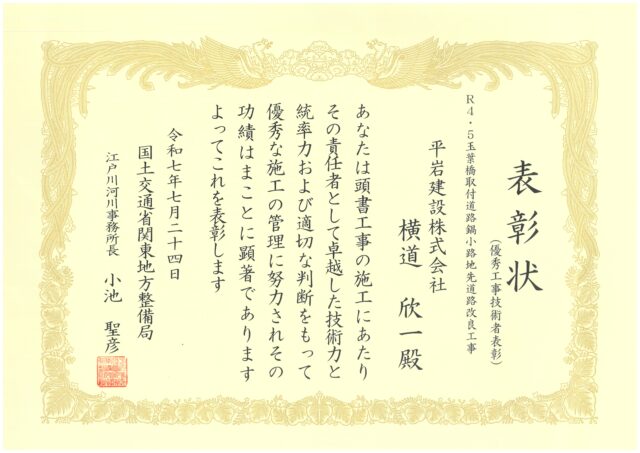 表彰状
(優秀工事技術者表彰)
R4・5玉葉橋取付道路鍋小路地先道路改良工事
平岩建設株式会社
横道 欣一殿
あなたは頭書工事の施工にあたり
その責任者として卓越した技術力と
統率力および適切な判断をもって
優秀な施工の管理に努力されその
功績はまことに顕著であります
よってこれを表彰します
令和七年七月二十四日
国土交通省関東地方整備局
江戸川河川事務所長 小池 聖彦